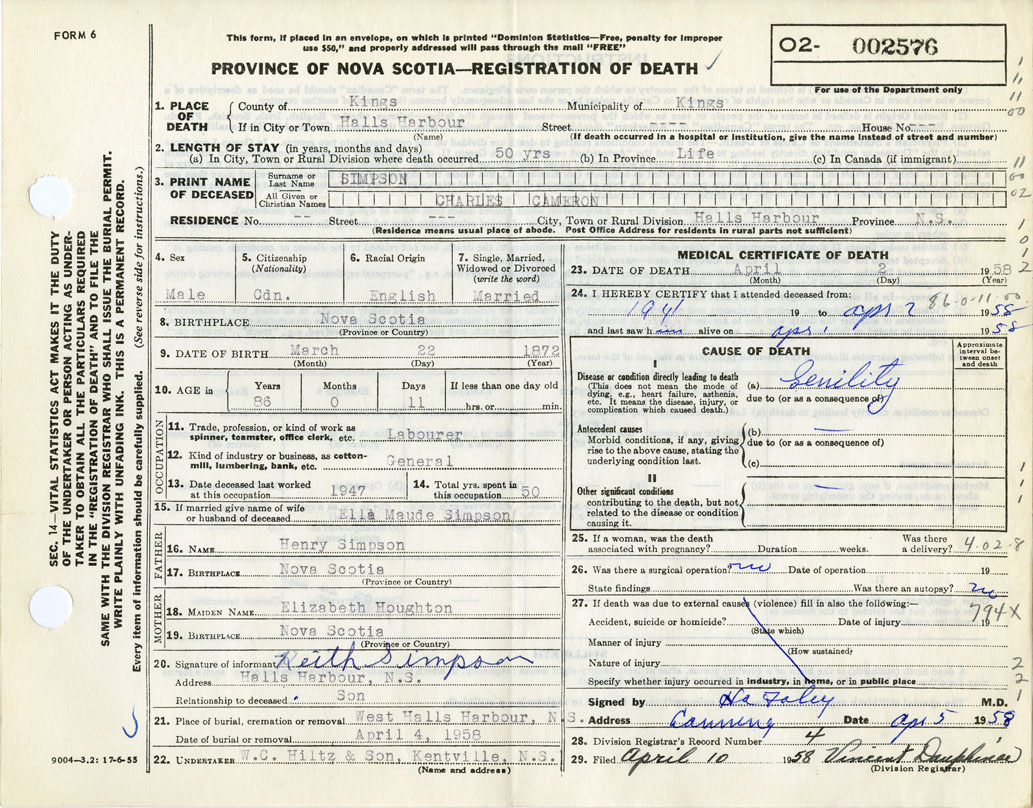 FORM 6
This form, if placed in an envelope, on which is printed "Dominion Statistics—Free, penalty for improper
use $50," and properly addressed will pass through the mail "FREE"
02- 002576
PROVINCE OF NOVA SCOTIA—REGISTRATION OF DEATH ✓
For use of the Department only
1. PLACE OF DEATH
County of Kings Municipality of Kings
If in City or Town Halls Harbour Street ---- House No. ---
(Name) (If death occurred in a hospital or institution, give the name instead of street and number)
2. LENGTH OF STAY (in years, months and days)
(a) In City, Town or Rural Division where death occurred 50 yrs (b) In Province Life (c) In Canada (if immigrant)
3. PRINT NAME OF DECEASED
Surname or Last Name SIMPSON
All Given or Christian Names CHARLES CAMERON
RESIDENCE No. -- Street --- City, Town or Rural Division Halls Harbour Province N.S.
(Residence means usual place of abode. Post Office Address for residents in rural parts not sufficient)
4. Sex Male
5. Citizenship (Nationality) Cdn.
6. Racial Origin English
7. Single, Married, Widowed or Divorced (write the word) Married
8. BIRTHPLACE Nova Scotia
(Province or Country)
9. DATE OF BIRTH March 22 1872
(Month) (Day) (Year)
10. AGE in Years Months Days If less than one day old
86 0 11 hrs. or min.
OCCUPATION
11. Trade, profession, or kind of work as
spinner, teamster, office clerk, etc. Labourer
12. Kind of industry or business, as cotton-
mill, lumbering, bank, etc. General
13. Date deceased last worked
at this occupation 1947
14. Total yrs. spent in
this occupation 50
15. If married give name of wife
or husband of deceased Ella Maude Simpson
FATHER
16. NAME Henry Simpson
17. BIRTHPLACE Nova Scotia
(Province or Country)
MOTHER
18. MAIDEN NAME Elizabeth Houghton
19. BIRTHPLACE Nova Scotia
(Province or Country)
20. Signature of informant Keith Simpson
Address Halls Harbour, N.S.
Relationship to deceased Son
21. Place of burial, cremation or removal West Halls Harbour, N.S.
Date of burial or removal April 4, 1958
22. UNDERTAKER W.C. Hiltz & Son, Kentville, N.S.
(Name and address)
MEDICAL CERTIFICATE OF DEATH
23. DATE OF DEATH April 2 1958
(Month) (Day)
24. I HEREBY CERTIFY that I attended deceased from: 86-0-11-00
1941 19 to apr 2 1958
and last saw h alive on apr 1 1958
CAUSE OF DEATH
Approximate interval between onset and death
I
Disease or condition directly leading to death (a) Senility
(This does not mean the mode of
dying, e.g., heart failure, asthenia,
etc. It means the disease, injury, or
complication which caused death.)
due to (or as a consequence of)
Antecedent causes
Morbid conditions, if any, giving
rise to the above cause, stating the
underlying condition last.
(b) —
due to (or as a consequence of)
(c)
II
Other significant conditions —
contributing to the death, but not
related to the disease or condition
causing it.
25. If a woman, was the death
associated with pregnancy? Duration weeks. Was there
a delivery? 4-02-8
26. Was there a surgical operation? no Date of operation 19
State findings Was there an autopsy? no
27. If death was due to external causes (violence) fill in also the following:— 794X
Accident, suicide or homicide? Date of injury 19
(State which)
Manner of injury
(How sustained)
Nature of injury
Specify whether injury occurred in industry, in home, or in public place
Signed by Ha Foley M.D.
Address Canning Date apr 5 1958
28. Division Registrar's Record Number 4
29. Filed April 10 1958 Vincent Dauphinee
(Division Registrar)
SEC. 14—VITAL STATISTICS ACT MAKES IT THE DUTY
OF THE UNDERTAKER OR PERSON ACTING AS UNDER-
TAKER TO OBTAIN ALL THE PARTICULARS REQUIRED
IN THE "REGISTRATION OF DEATH" AND TO FILE THE
SAME WITH THE DIVISION REGISTRAR WHO SHALL ISSUE THE BURIAL PERMIT.
WRITE PLAINLY WITH UNFADING INK. THIS IS A PERMANENT RECORD.
Every item of information should be carefully supplied. (See reverse side for instructions.)
9004—3.2: 17-6-55